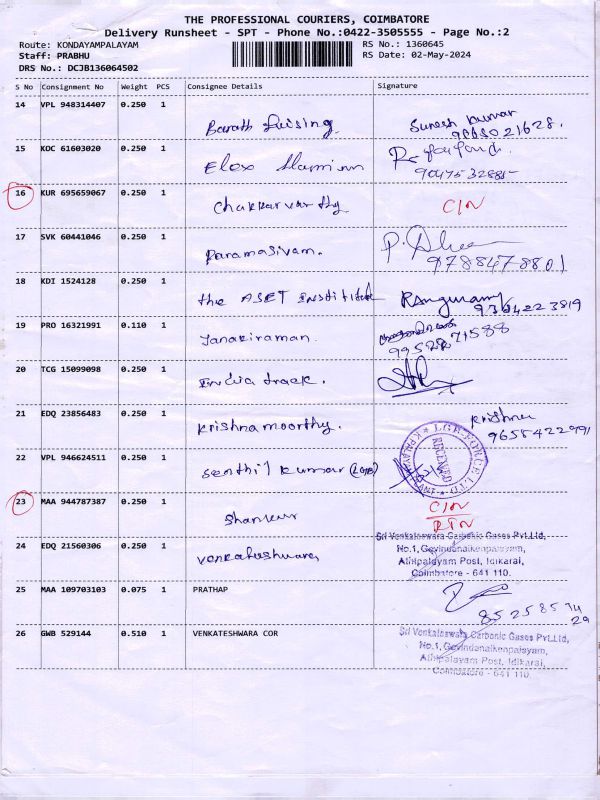 THE PROFESSIONAL COURIERS, COIMBATORE
Delivery Runsheet - SPT - Phone No.:0422-3505555 - Page No.:2
Route: KONDAYAMPALAYAM RS No.: 1360645
Staff: PRABHU RS Date: 02-May-2024
DRS No.: DCJB136064502
S No Consignment No Weight PCS Consignee Details Signature
14 VPL 948314407 0.250 1
Barath Suresh kumar
15 KOC 61603020 0.250 1
16 KUR 695659067 0.250 1
Chakkarvarthy C/N
17 SVK 60441046 0.250 1
Paramasivam. 9788478801
18 KDI 1524128 0.250 1
the ASET Institute 9364223819
19 PRO 16321991 0.110 1
Janakiraman.
20 TCG 15099098 0.250 1
India track.
21 EDQ 23856483 0.250 1 Krishna
Krishnamoorthy.
22 VPL 946624511 0.250 1 LGB FORGE LTD
RECEIVED
Senthil kumar
23 MAA 944787387 0.250 1 C/N
Shankar RTN
Sri Venkateswara Carbonic Gases Pvt.Ltd,
24 EDQ 21560306 0.250 1 No.1, Govindanaikenpalayam,
Athipalayam Post, Idikarai,
Coimbatore - 641 110.
25 MAA 109703103 0.075 1 PRATHAP
26 GWB 529144 0.510 1 VENKATESHWARA COR Sri Venkateswara Carbonic Gases Pvt.Ltd,
No.1, Govindanaikenpalayam,
Athipalayam Post, Idikarai,
Coimbatore - 641 110.